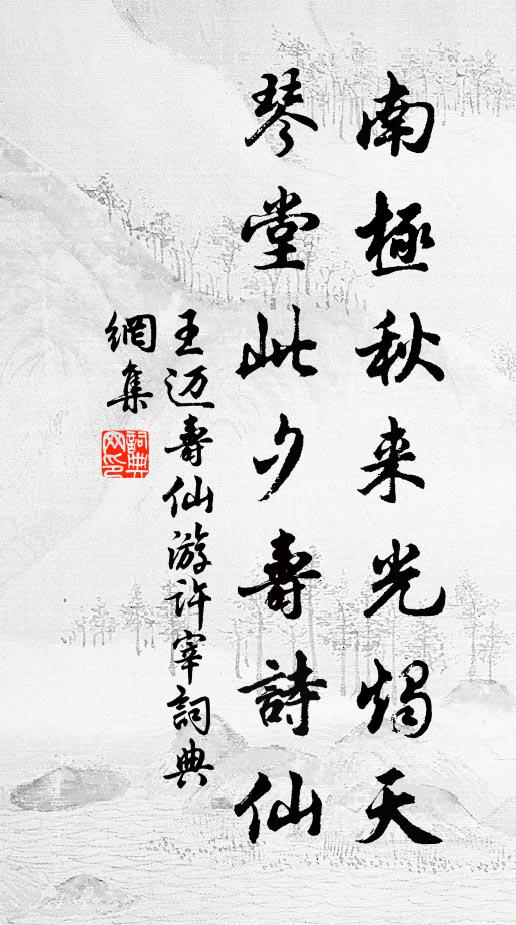 南極秋来光燭天
琴堂此夕壽詩仙
王迈壽仙游许宰詞典
網集
詞典網印